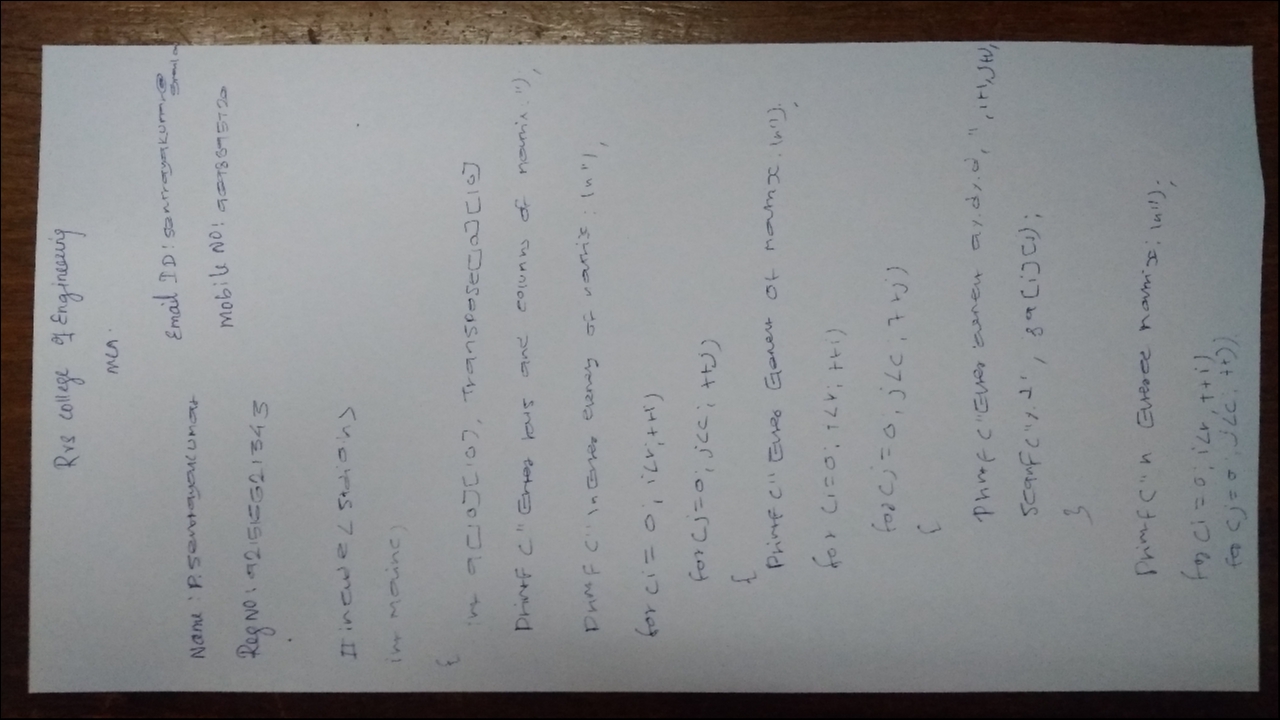 Rvs College of Engineering
MCA.
Name: P. Senbrayakumar Email ID:
Reg NO: Mobile NO:
# include < stdio.h>
int main()
{
int a[10][10], Transpose[10][10]
Printf (" Enter rows and columns of matrix: ");
Printf ("\n Enter elements of matrix: \n"),
for (i = 0; i<r; ++i)
for (j=0; j<c; ++j)
{
Printf (" Enter Element of matrix: \n");
for (i=0; i<r; ++i)
for (j=0; j<c; ++j)
{
Printf ("Enter element a%d%d, ", i+1, j+1,
Scanf ("%d", &a[i][j]);
}
Printf ("\n Entered matrix: \n");
for (i=0; i<r, ++i)
for (j=0; j<c, ++j)